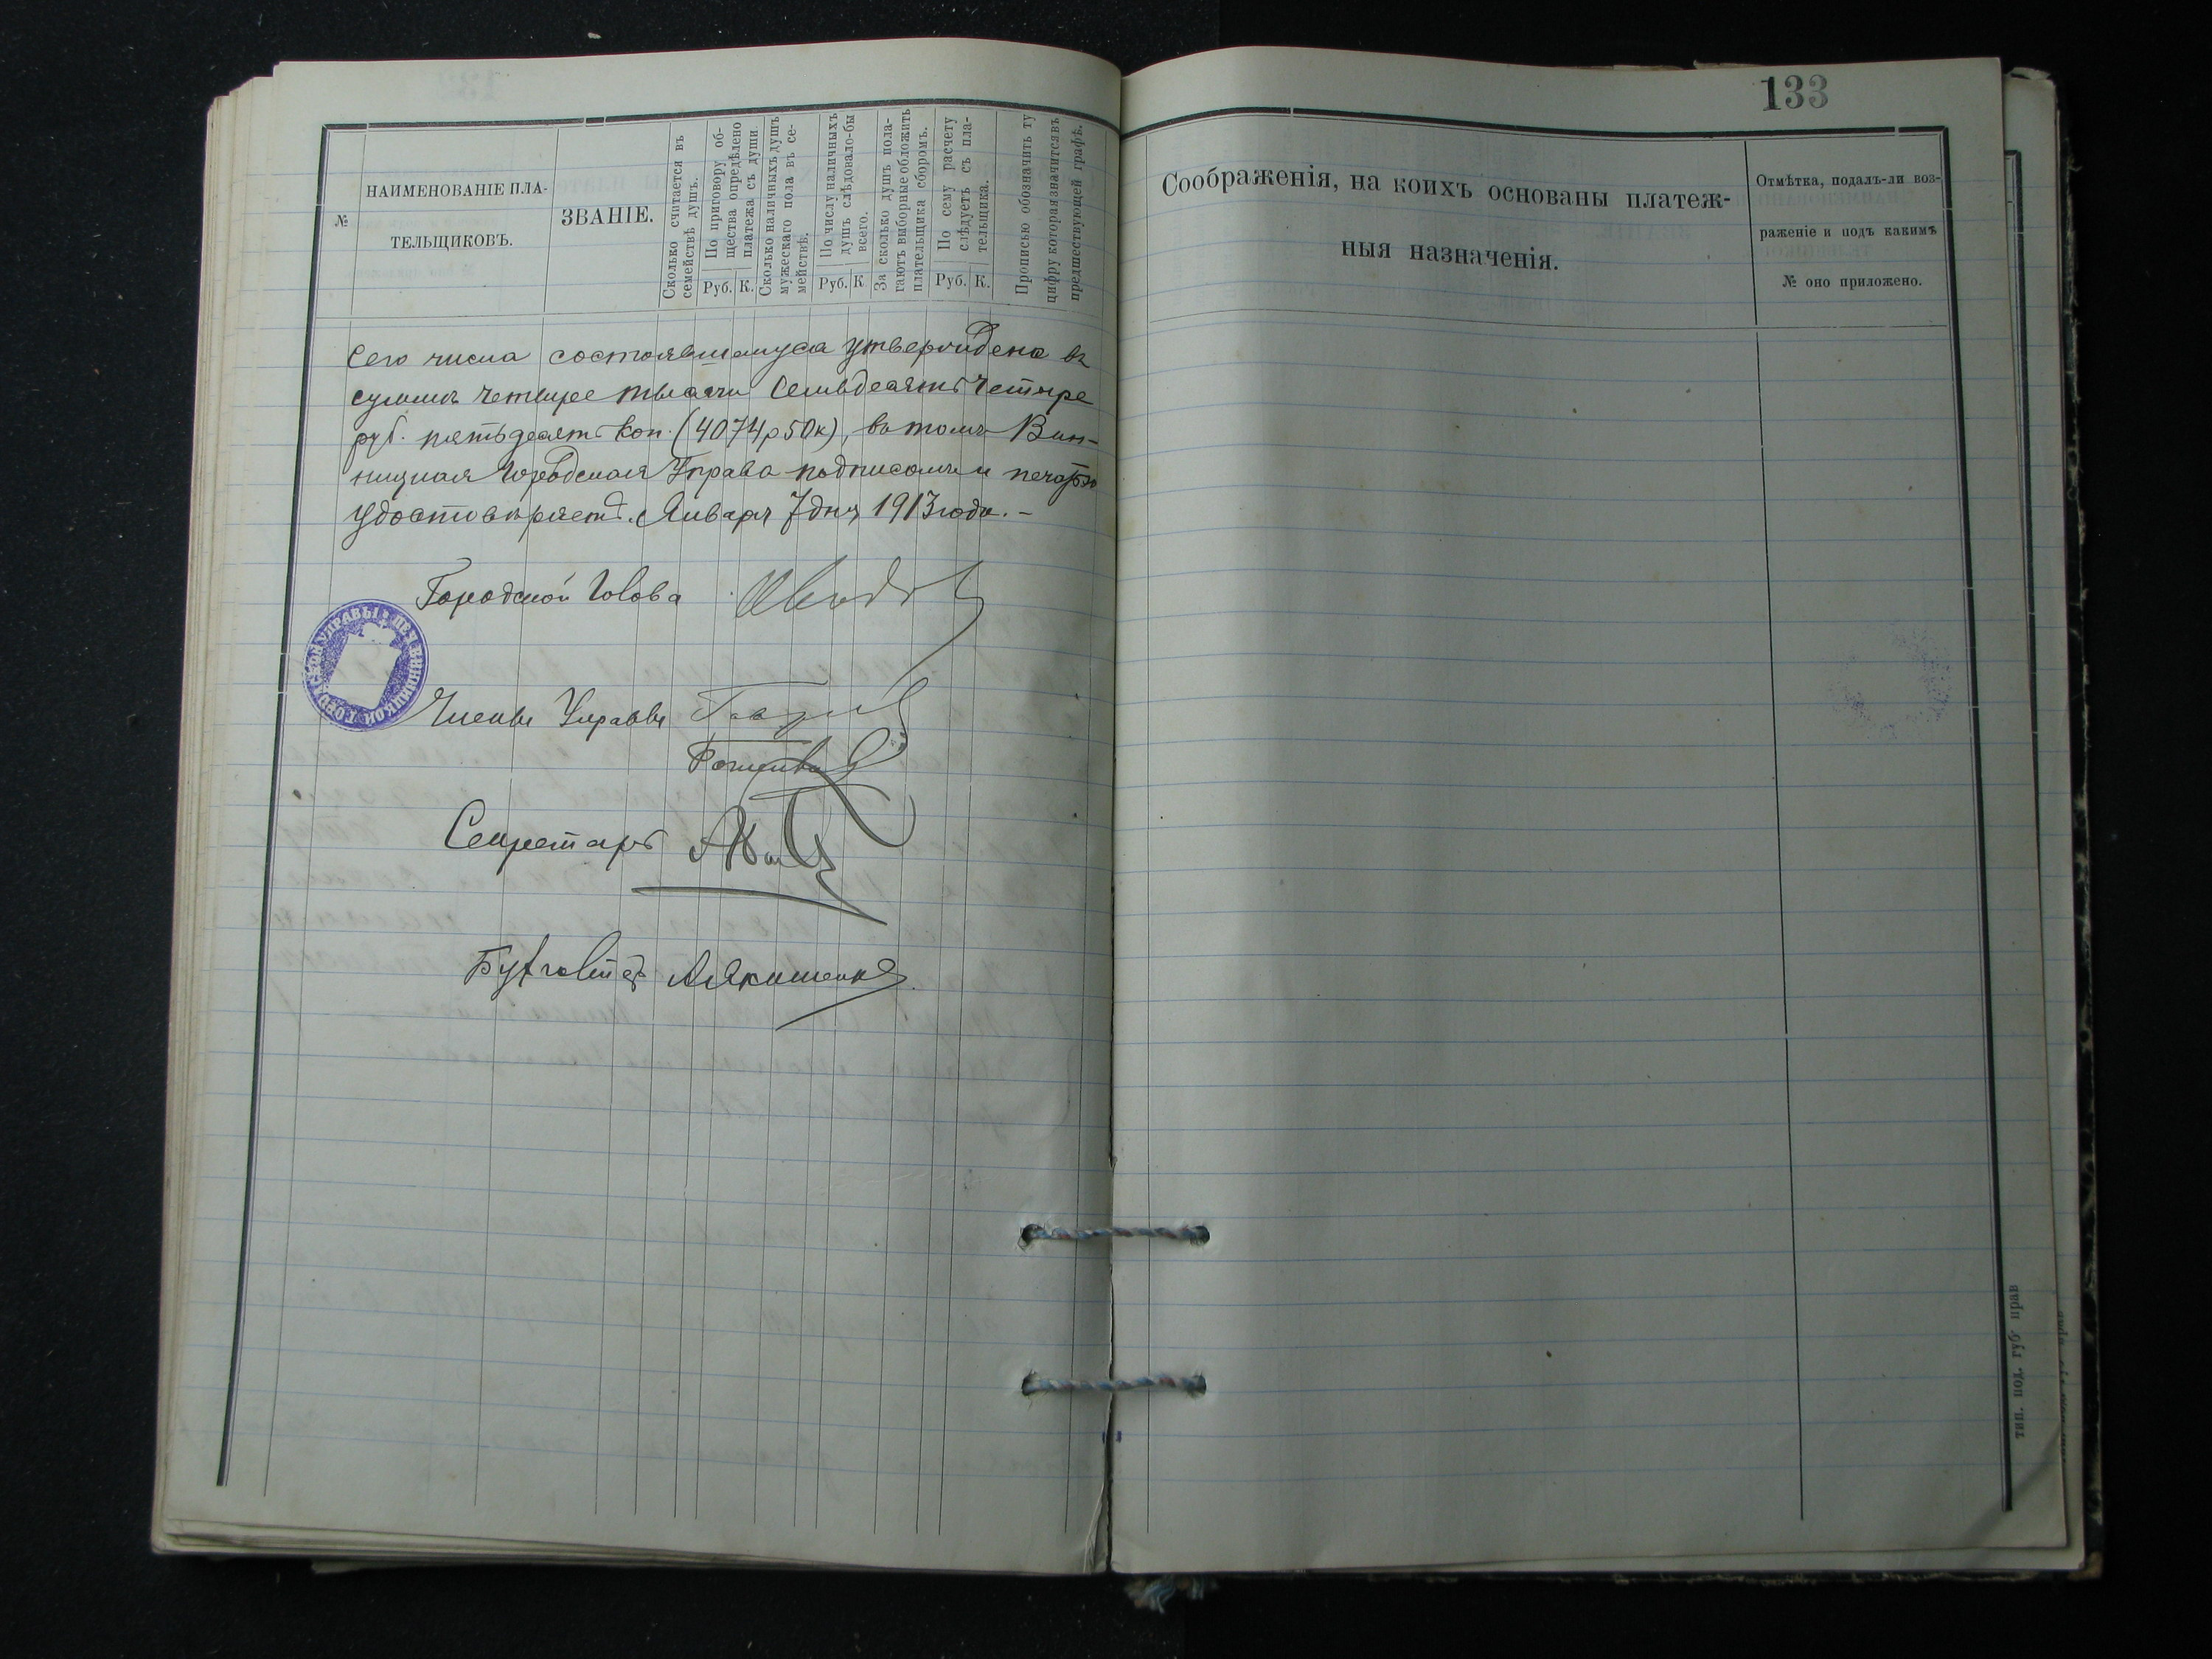 №
НАИМЕНОВАНІЕ ПЛА-
ТЕЛЬЩИКОВЪ.
ЗВАНІЕ.
Сколько считается въ
семействѣ душъ.
По приговору об-
щества опредѣлено
платежа съ души.
Руб. К.
Сколько наличныхъ душъ
мужескаго пола въ се-
мействѣ.
По числу наличныхъ
душъ слѣдовало-бы
всего.
Руб. К
За сколько душъ пола-
гаютъ выборные обложить
плательщика сборомъ.
По сему расчету
слѣдуетъ съ пла-
тельщика.
Руб. К.
Прописью обозначить ту
цифру которая значится въ
предшествующей графѣ.
Сего числа состоявшемуся утверждена въ
суммѣ четыре тысячи семьдесятъ четыре
руб. пятьдесятъ коп. (4074р50к), въ томъ Вин-
ницкая Городская Управа подписомъ и печатью
удостовѣряетъ. Января 7 дня 1913 года. –
Городской Голова
Члены Управы
Секретарь
Бухгалтеръ А Якименко
ПЕЧ. ВИННИЦКОЙ ГОРОДСКОЙ УПРАВЫ
133
Соображенія, на коихъ основаны платеж-
ныя назначенія.
Отмѣтка, подалъ-ли воз-
раженіе и подъ какимъ
№ оно приложено.
тип. под. губ прав